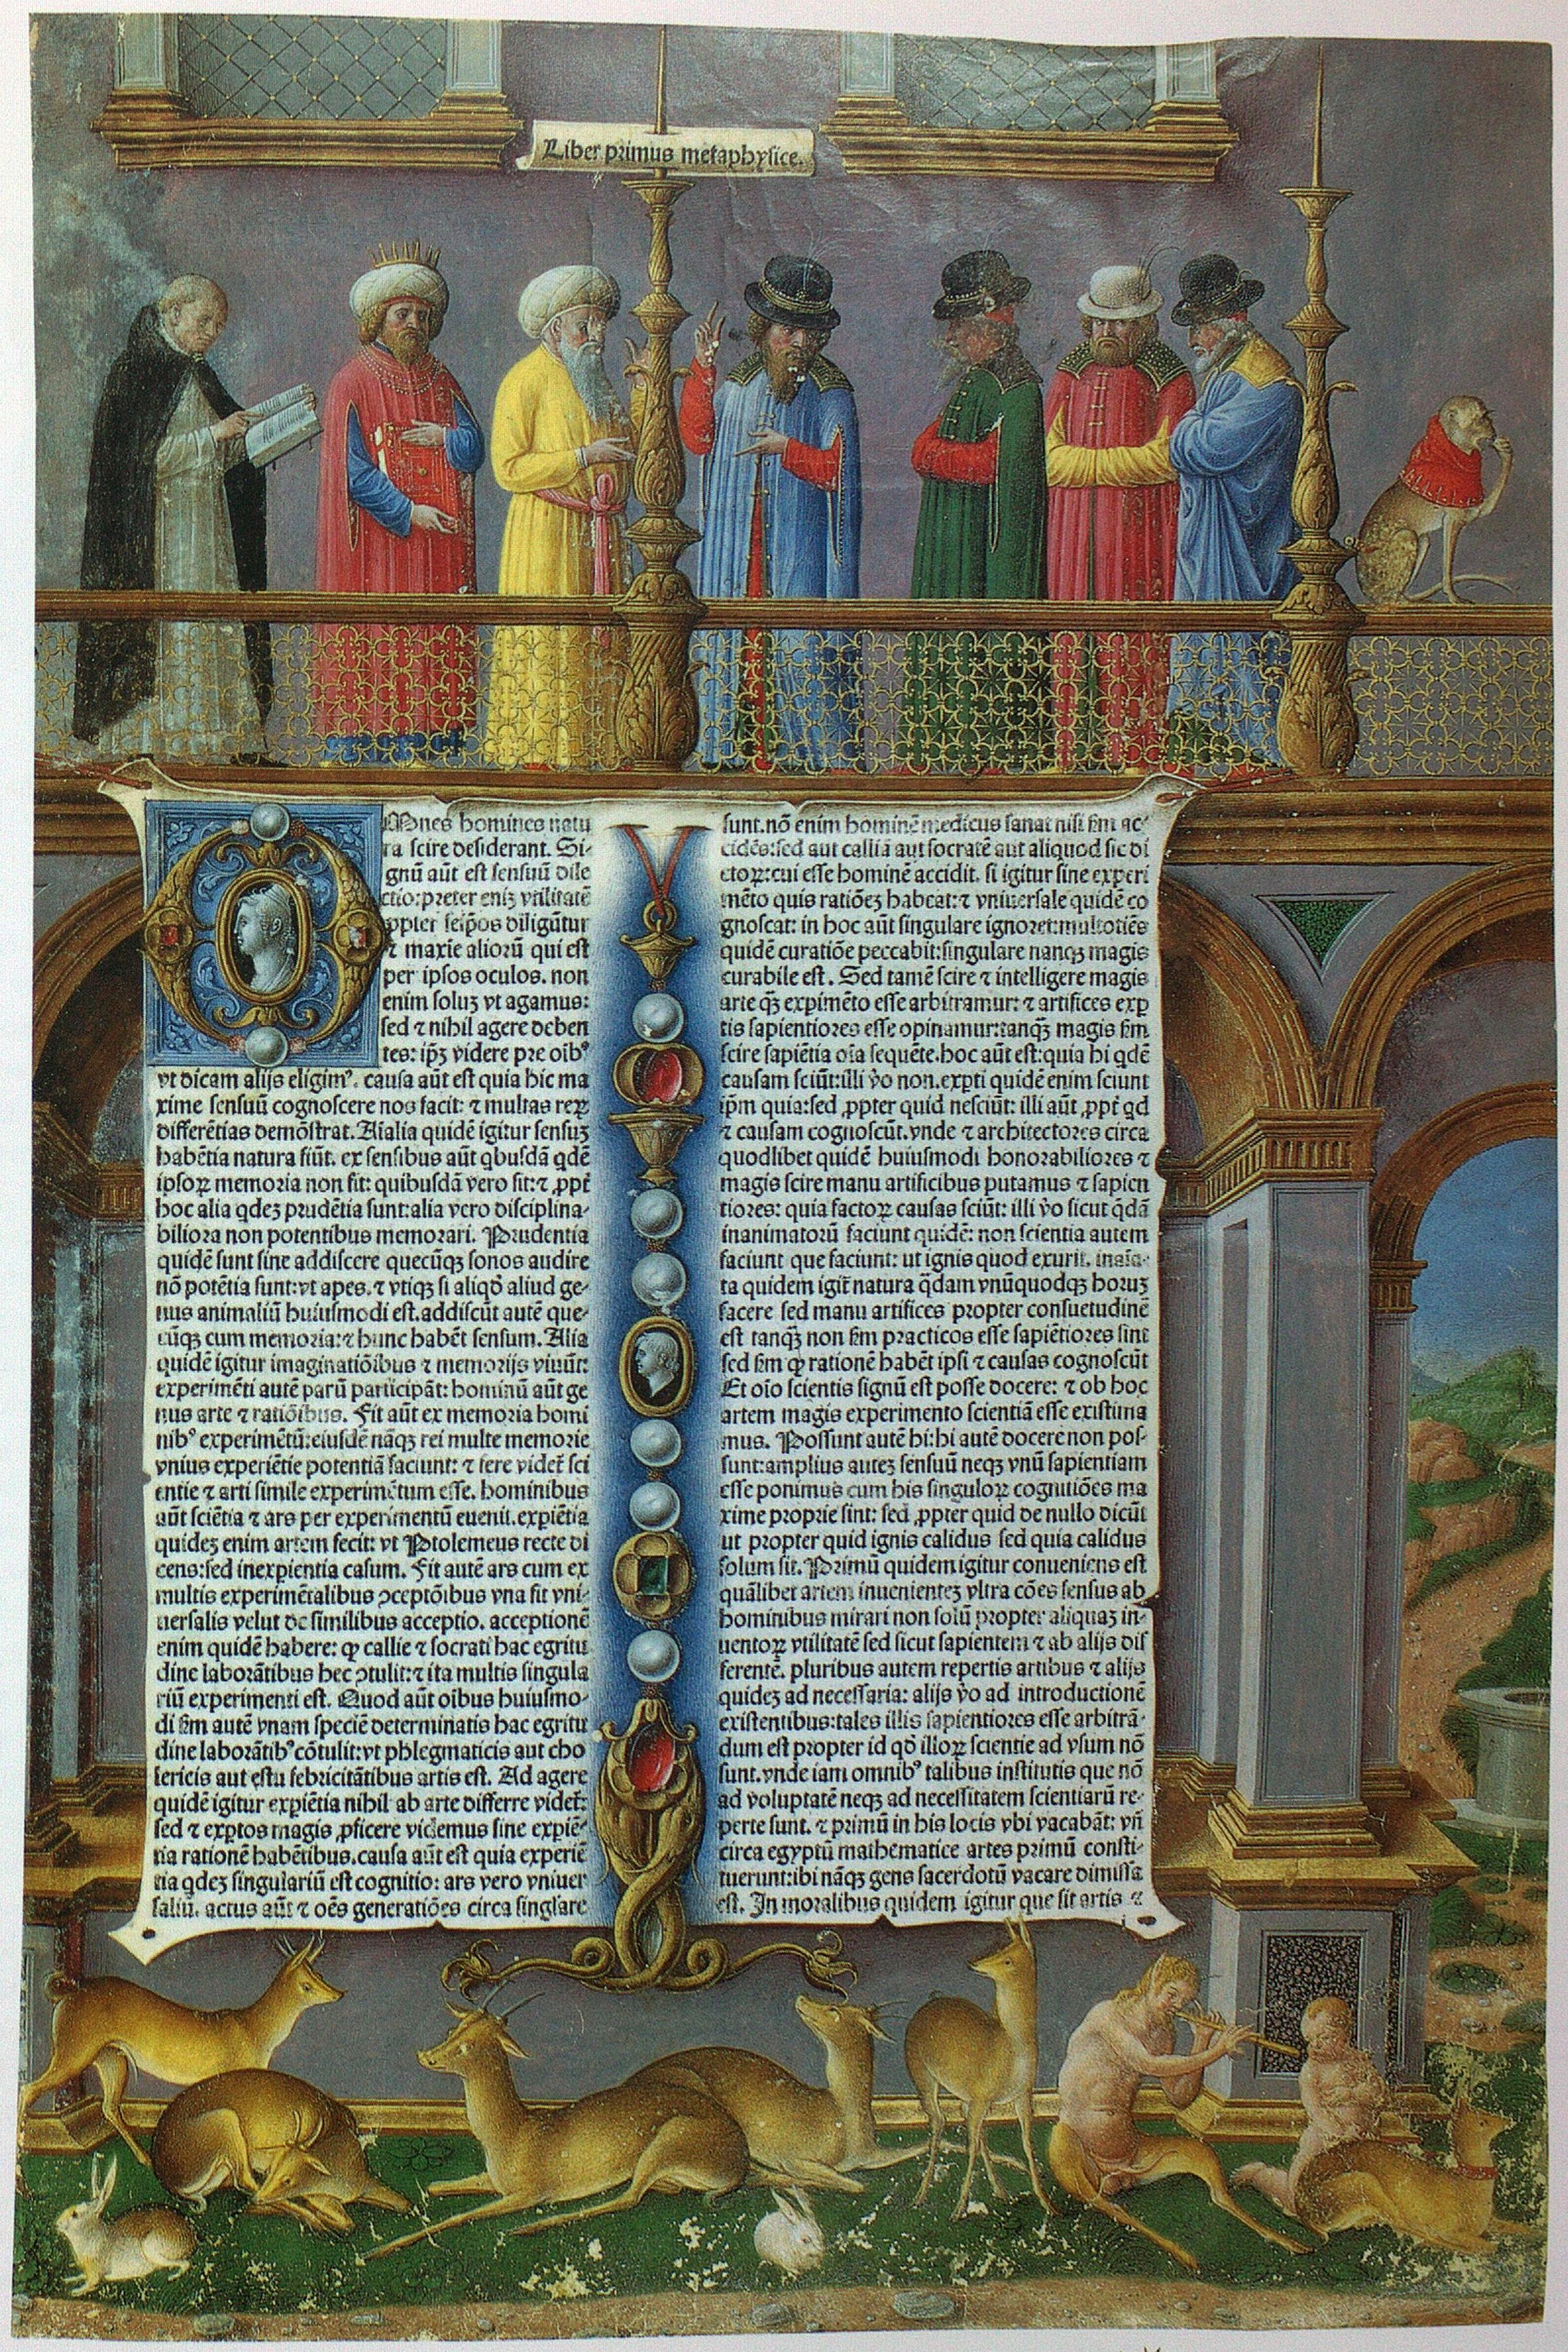 Liber primus metaphysice.
Omnes homines natu
ra scire desiderant. Si-
gnũ aũt est sensuũ dile
ctio: preter eniʒ vtilitatẽ
ꝓpter seip̃os diligũtur
⁊ maxie aliorũ qui est
per ipsos oculos. non
enim soluʒ vt agamus:
sed ⁊ nihil agere deben
tes: ip̃ʒ videre pre oibꝰ
vt dicam alijs eligimꝰ. causa aũt est quia hic ma
xime sensuũ cognoscere nos facit: ⁊ multas reꝝ
differẽtias demõstrat. Aialia quidẽ igitur sensuʒ
habẽtia natura fiũt. ex sensibus aũt qbusdã qdẽ
ipsoꝝ memoria non fit: quibusdã vero fit: ⁊ ꝓpt̃
hoc alia qdeʒ prudẽtia sunt: alia vero disciplina-
biliora non potentibus memorari. Prudentia
quidẽ sunt sine addiscere quecũqʒ sonos audire
nõ potẽtia sunt: vt apes. ⁊ vtiqʒ si aliqđ aliud ge-
nus animaliũ huiusmodi est. addiscũt autẽ que-
cũqʒ cum memoria: ⁊ hunc habẽt sensum. Alia
quidẽ igitur imaginatiõibus ⁊ memorijs viuũt:
experimẽti autẽ parũ participãt: hominũ aũt ge
nus arte ⁊ ratiõibus. Fit aũt ex memoria homi
nibꝰ experimẽtũ: eiusdẽ nãqʒ rei multe memorie
vnius experiẽtie potentiã faciunt: ⁊ fere videt̃ sci
entie ⁊ arti simile experimẽtum esse. hominibus
aũt sciẽtia ⁊ ars per experimentũ euenit. exꝑiẽtia
quideʒ enim artem fecit: vt Ptolemeus recte di
cens: sed inexꝑientia casum. Fit autẽ ars cum ex
multis experimẽtalibus ꝯceptõibus vna fit vni-
uersalis velut de similibus acceptio. acceptionẽ
enim quidẽ habere: ꝙ callie ⁊ socrati hac egritu
dine laborãtibus hec ꝯtulit: ⁊ ita multis singula
riũ experimenti est. Quod aũt oibus huiusmo-
di ẜm autẽ vnam speciẽ determinatis hac egritu
dine laborãtibꝰ cõtulit: vt phlegmaticis aut cho
lericis aut estu febricitãtibus artis est. Ad agere
quidẽ igitur exꝑiẽtia nihil ab arte differre videt̃:
sed ⁊ exꝑtos magis ꝓficere videmus sine exꝑiẽ-
tia rationẽ habẽtibus. causa aũt est quia experiẽ
tia qdeʒ singulariũ est cognitio: ars vero vniuer
saliũ. actus aũt ⁊ oẽs generatiões circa singl̃are
sunt. nõ enim hominẽ medicus sanat nisi ẜm ac-
cidẽs: sed aut calliã aut socratẽ aut aliquod sic di
ctoꝝ: cui esse hominẽ accidit. si igitur sine experi
mẽto quis rationẽʒ habeat: ⁊ vniuersale quidẽ co
gnoscat: in hoc aũt singulare ignoret: multotiẽs
quidẽ curatiõe peccabit: singulare nanqʒ magis
curabile est. Sed tamẽ scire ⁊ intelligere magis
arte qʒ̃ exꝑimẽto esse arbitramur: ⁊ artifices exꝑ
tis sapientiores esse opinamur: tanqʒ̃ magis ẜm
scire sapiẽtia oĩa sequẽte. hoc aũt est: quia hi qdẽ
causam sciũt: illi ṽo non. exꝑti quidẽ enim sciunt
ip̃m quia: sed ꝓpter quid nesciũt: illi aũt ꝓpt̃ qd
⁊ causam cognoscũt. vnde ⁊ architectores circa
quodlibet quidẽ huiusmodi honorabiliores ⁊
magis scire manu artificibus putamus ⁊ sapien
tiores: quia factoꝝ causas sciũt: illi ṽo sicut qdã
inanimatorũ faciunt quidẽ: non scientia autem
faciunt que faciunt: ut ignis quod exurit. inaĩa-
ta quidem igit̃ natura q̃dam vnũquodqʒ horuʒ
facere sed manu artifices propter consuetudinẽ
est tanqʒ̃ non ẜm practicos esse sapiẽtiores sint
sed ẜm ꝙ rationẽ habẽt ipsi ⁊ causas cognoscũt
Et oĩo scientis signũ est posse docere: ⁊ ob hoc
artem magis experimento scientiã esse existima
mus. Possunt autẽ hi: hi autẽ docere non pos-
sunt: amplius auteʒ sensuũ neqʒ vnũ sapientiam
esse ponimus cum his singuloꝝ cognitiões ma
xime proprie sint: sed ꝓpter quid de nullo dicũt
ut propter quid ignis calidus sed quia calidus
solum sit. Primũ quidem igitur conueniens est
quãlibet artem inuenienteʒ vltra cões sensus ab
hominibus mirari non solũ propter aliquaʒ in-
uentoꝝ vtilitatẽ sed sicut sapientem ⁊ ab alijs dif
ferentẽ. pluribus autem repertis artibus ⁊ alijs
quideʒ ad necessaria: alijs ṽo ad introductionẽ
existentibus: tales illis sapientiores esse arbitrã-
dum est propter id qđ illoꝝ scientie ad vsum nõ
sunt. vnde iam omnibꝰ talibus institutis que nõ
ad voluptatẽ neqʒ ad necessitatem scientiarũ re-
perte sunt. ⁊ primũ in his locis vbi vacabãt: vñ
circa egyptũ mathematice artes primũ consti-
tuerunt: ibi nãqʒ gens sacerdotũ vacare dimissa
est. In moralibus quidem igitur que sit artis ⁊